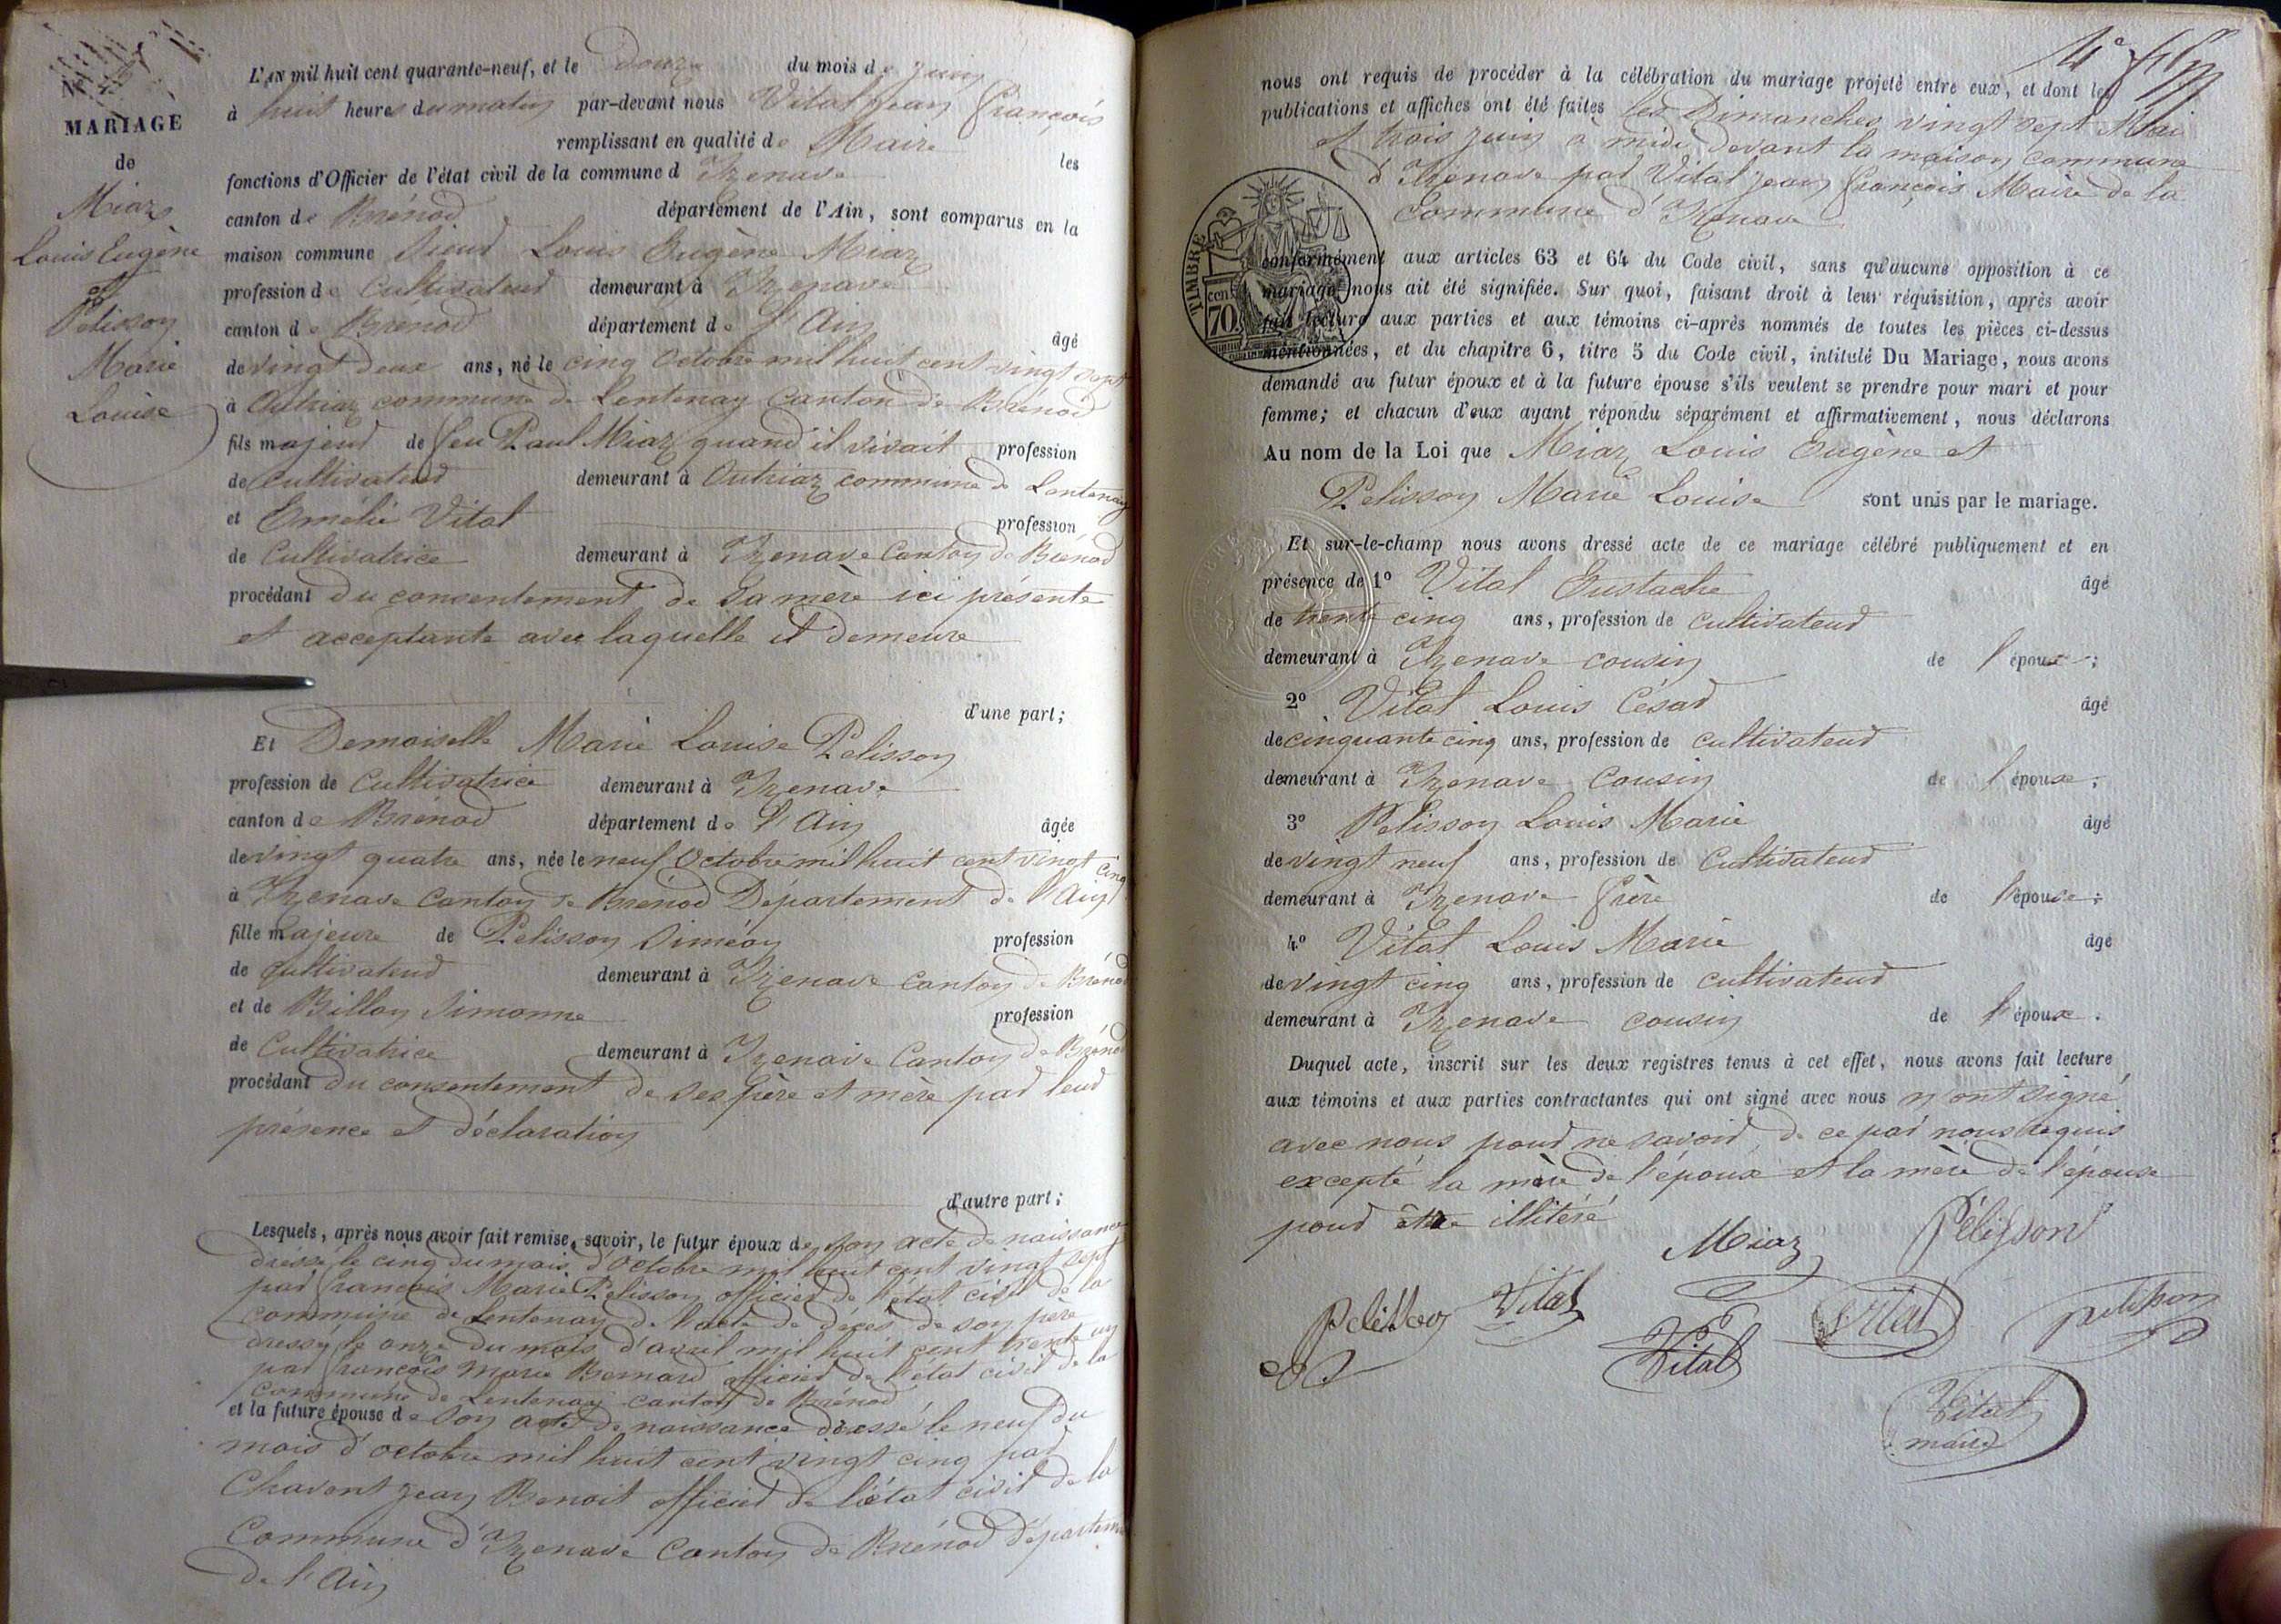 MARIAGE
de
Miaz
Louis Eugène
et
Pelisson
Marie
Louise
L'AN mil huit cent quarante-neuf, et le douze du mois de juin
à huit heures du matin par-devant nous Vital jean françois
remplissant en qualité de Maire les
fonctions d'Officier de l'état civil de la commune d Izenave
canton de Brénod département de l'Ain, sont comparus en la
maison commune Sieur Louis Eugène Miaz
profession de Cultivateur demeurant à Izenave
canton de Brénod département de L'Ain âgé
de vingt deux ans, né le cinq Octobre mil huit cent vingt sept
à Outriaz commune de Lentenay Canton de Brénod
fils majeur de feu Paul Miaz quand il vivait profession
de cultivateur demeurant à Outriaz commune de Lentenay
et Emélie Vital profession
de Cultivatrice demeurant à Izenave Canton de Brénod
procédant du consentement de sa mère ici présente
et acceptante avec laquelle il demeure
d'une part;
Et Demoiselle Marie Louise Pelisson
profession de Cultivatrice demeurant à Izenave
canton de Brénod département de L'Ain âgée
de vingt quatre ans, née le neuf Octobre mil huit cent vingt cinq
à Izenave Canton de Brénod Département de l'Ain
fille majeure de Pelisson Siméon profession
de cultivateur demeurant à Izenave Canton de Brénod
et de Billon Simonne profession
de Cultivatrice demeurant à Izenave Canton de Brénod
procédant du consentement de ses père et mère par leur
présence et déclaration
d'autre part;
Lesquels, après nous avoir fait remise, savoir, le futur époux de son acte de naissance
dressé le cinq du mois d'Octobre mil huit cent vingt sept
par françois Marie Pelisson officier de l'état civil de la
commune de Lentenay de l'acte de décès de son père
dressé le onze du mois d'avril mil huit cent trente un
par françois marie Bernard officier de l'état civil de la
commune de Lentenay canton de Brénod
et la future épouse de son acte de naissance dressé le neuf du
mois d'octobre mil huit cent vingt cinq par
Chavent jean Benoit officier de l'état civil de la
Commune d'Izenave Canton de Brénod Départem
de l'Ain
nous ont requis de procéder à la célébration du mariage projeté entre eux, et dont les
publications et affiches ont été faites les Dimanches vingt sept Mai
et trois juin à midi devant la maison commune
d'Izenave par Vital jean françois Maire de la
Commune d'Izenave
TIMBRE
cent
70
conformément aux articles 63 et 64 du Code civil, sans qu'aucune opposition à ce
mariage nous ait été signifiée. Sur quoi, faisant droit à leur réquisition, après avoir
fait lecture aux parties et aux témoins ci-après nommés de toutes les pièces ci-dessus
mentionnées, et du chapitre 6, titre 5 du Code civil, intitulé Du Mariage, nous avons
demandé au futur époux et à la future épouse s'ils veulent se prendre pour mari et pour
femme; et chacun d'eux ayant répondu séparément et affirmativement, nous déclarons
Au nom de la Loi que Miaz Louis Eugène et
Pelisson Marie Louise sont unis par le mariage.
Et sur-le-champ nous avons dressé acte de ce mariage célébré publiquement et en
présence de 1º Vital Eustache âgé
de trente cinq ans, profession de Cultivateur
demeurant à Izenave cousin de l'époux;
2º Vital Louis César âgé
de cinquante cinq ans, profession de cultivateur
demeurant à Izenave Cousin de l'époux;
3º Pelisson Louis Marie âgé
de vingt neuf ans, profession de Cultivateur
demeurant à Izenave frère de l'épouse;
4º Vital Louis Marie âgé
de vingt cinq ans, profession de cultivateur
demeurant à Izenave cousin de l'époux.
Duquel acte, inscrit sur les deux registres tenus à cet effet, nous avons fait lecture
aux témoins et aux parties contractantes qui ont signé avec nous n'ont signé
avec nous pour ne savoir de ce par nous requis
excepté la mère de l'époux et la mère de l'épouse
pour être illitéré
Miaz Pélisson
Pelisson Vital Vital Vital pelisson
Vital
maire